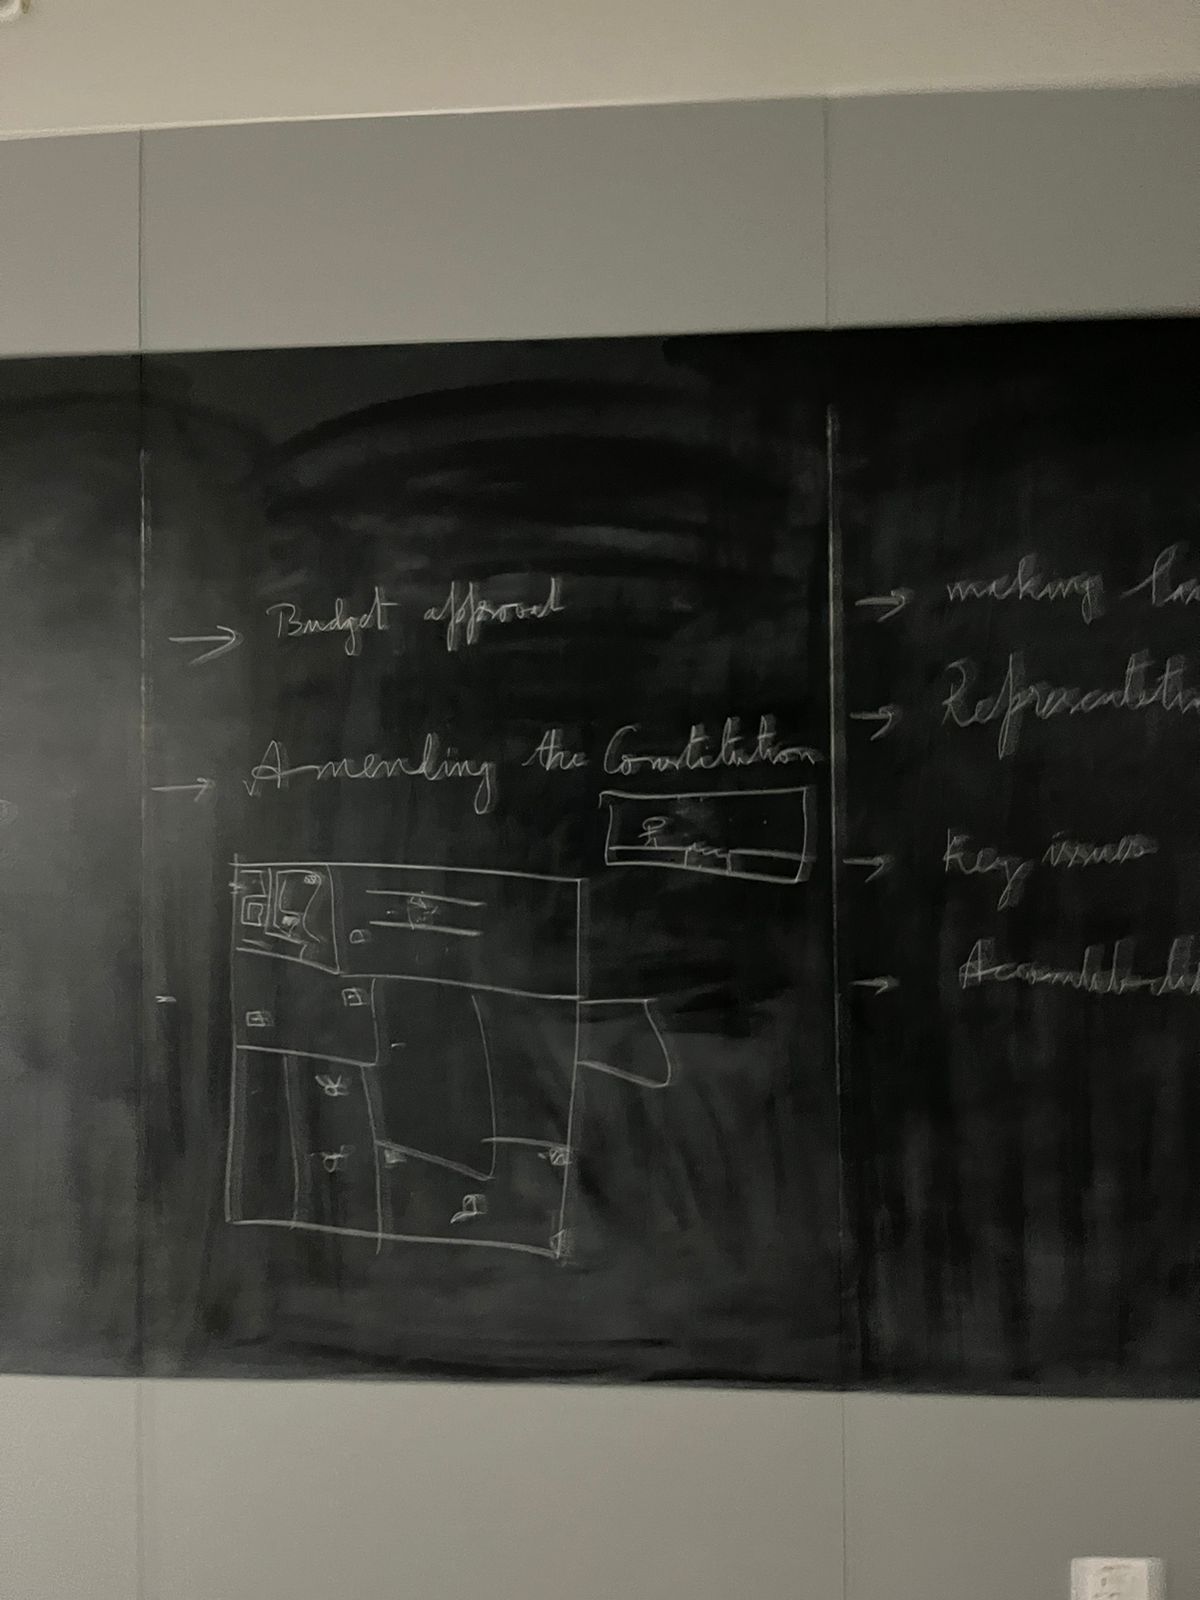 → Budget approval
→ Amending the Constitution
→ making
→ Representati
→ Key issues
→